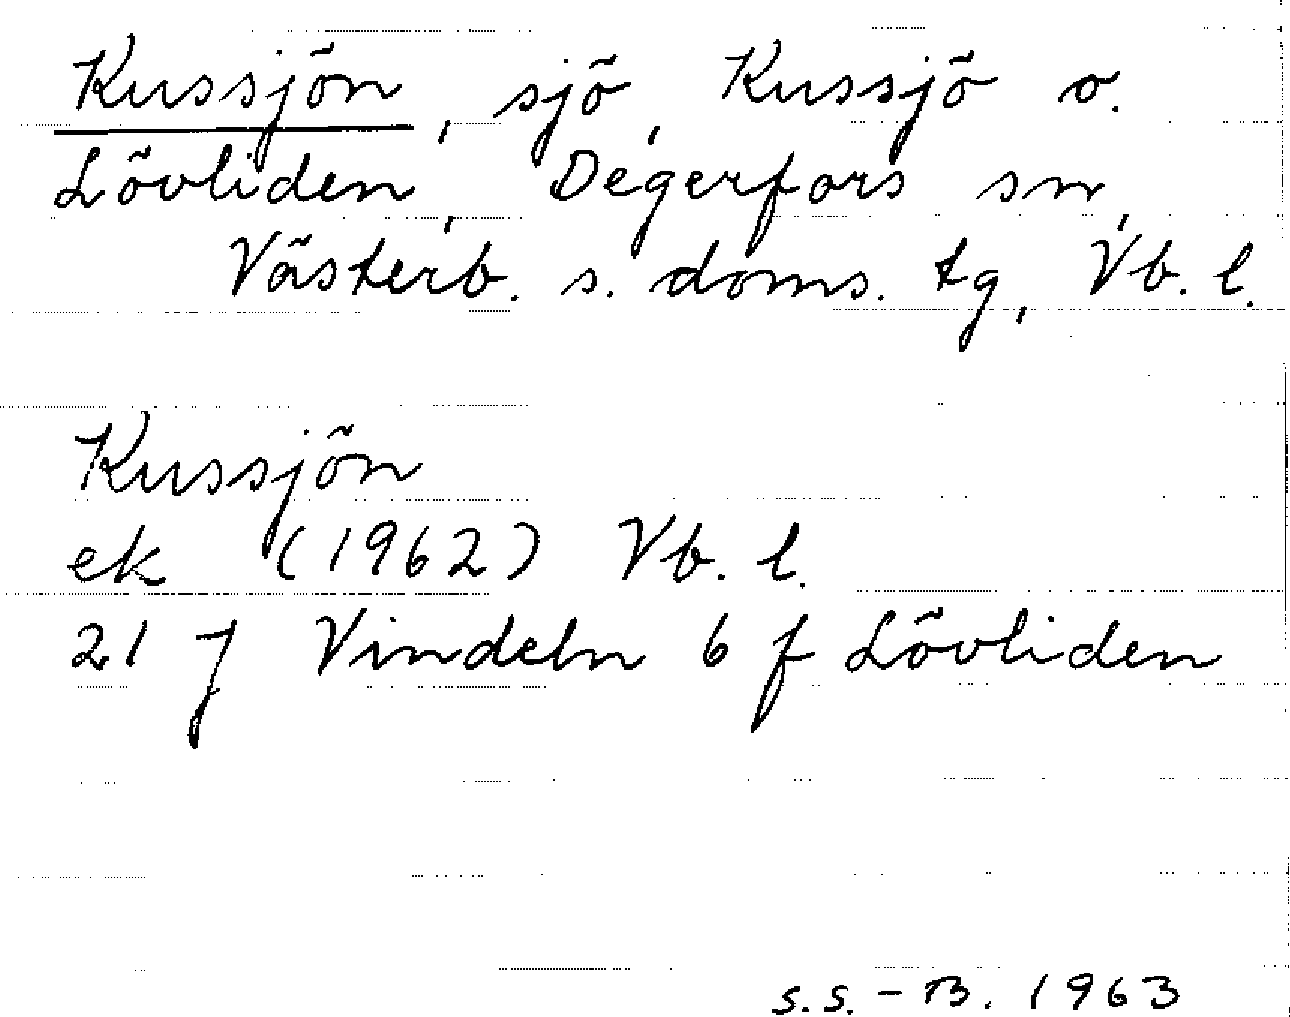 Kussjön, sjö, Kussjö o.
Lövliden, Degerfors sn,
Västerb. s. doms. tg, Vb. l.
Kussjön
ek (1962) Vb. l.
21 J Vindeln 6 f Lövliden
s.s. - B. 1963